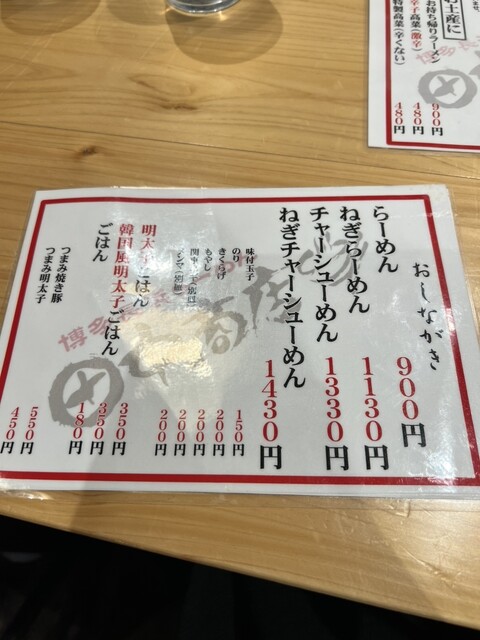 おしながき
らーめん 900円
ねぎらーめん 1130円
チャーシューめん 1330円
ねぎチャーシューめん 1430円
味付玉子 150円
のり 200円
きくらげ 200円
もやし 200円
メンマ(別皿) 200円
明太子ごはん 350円
韓国風明太子ごはん 350円
ごはん 180円
つまみ焼き豚 550円
つまみ明太子 450円
博多長
お土産に
お持ち帰りラーメン 900円
辛子高菜(激辛) 480円
特製高菜(辛くない) 480円